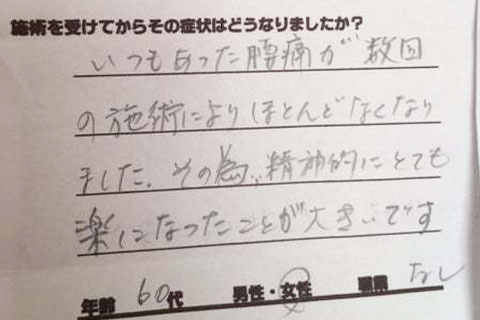 施術を受けてからその症状はどうなりましたか？
いつもあった腰痛が数回
の施術によりほとんどなくなり
ました。その為、精神的にとても
楽になったことが大きいです
年齢 60代 男性・女性 職業 なし